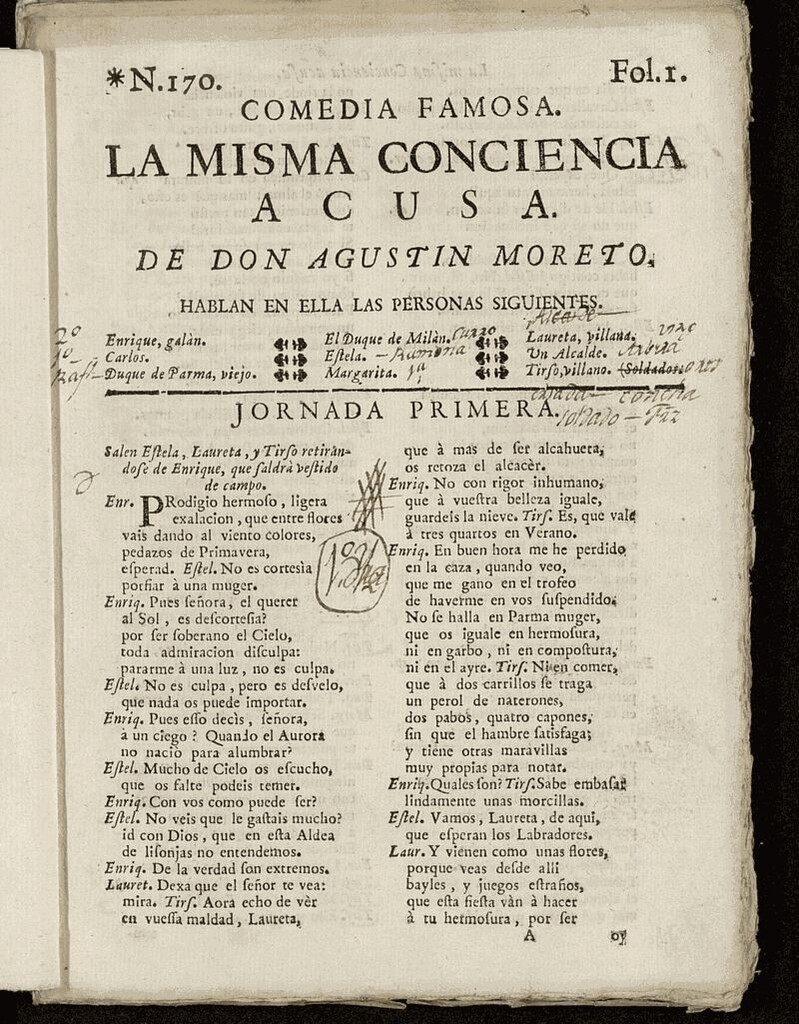 *N.170. Fol.1.
COMEDIA FAMOSA.
LA MISMA CONCIENCIA
ACUSA.
DE DON AGUSTIN MORETO.
HABLAN EN ELLA LAS PERSONAS SIGUIENTES.
Alcarde
2º Enrique, galàn. El Duque de Milàn. Curro Laureta, villana.
1º Carlos. Estela. – Ramona Un Alcalde.
Duque de Parma, viejo. Margarita. 1ª Tirso, villano. Soldados.
concha
soldado – Paz
JORNADA PRIMERA.
Salen Eſtela, Laureta, y Tirſo retiràn-
doſe de Enrique, que ſaldrà veſtido
de campo.
Enr. PRodigio hermoſo, ligera
exalacion, que entre flores
vais dando al viento colores,
pedazos de Primavera,
eſperad. Eſtel. No es cortesìa
porfiar à una muger.
Enriq. Pues ſeñora, el querer
al Sol, es deſcorteſia?
por ſer ſoberano el Cielo,
toda admiracion diſculpa:
pararme à una luz, no es culpa.
Eſtel. No es culpa, pero es deſvelo,
que nada os puede importar.
Enriq. Pues eſſo decìs, ſeñora,
à un ciego? Quando el Aurora
no naciò para alumbrar?
Eſtel. Mucho de Cielo os eſcucho,
que os falte podeis temer.
Enriq. Con vos como puede ſer?
Eſtel. No veis que le gaſtais mucho?
id con Dios, que en eſta Aldea
de liſonjas no entendemos.
Enriq. De la verdad ſon extremos.
Lauret. Dexa que el ſeñor te vea:
mira. Tirſ. Aora echo de vèr
en vueſſa maldad, Laureta,
que à mas de ſer alcahueta,
os retoza el alcacèr.
Enriq. No con rigor inhumano,
que à vueſtra belleza iguale,
guardeis la nieve. Tirſ. Es, que vale
à tres quartos en Verano.
Enriq. En buen hora me he perdido
en la caza, quando veo,
que me gano en el trofeo
de haverme en vos ſuſpendido.
No ſe halla en Parma muger,
que os iguale en hermoſura,
ni en garbo, ni en compoſtura,
ni en el ayre. Tirſ. Ni en comer,
que à dos carrillos ſe traga
un perol de naterones,
dos pabos, quatro capones,
ſin que el hambre ſatisfaga;
y tiene otras maravillas
muy propias para notar.
Enriq. Quales ſon? Tirſ. Sabe embaſar
lindamente unas morcillas.
Eſtel. Vamos, Laureta, de aqui,
que eſperan los Labradores.
Laur. Y vienen como unas flores,
porque veas deſde alli
bayles, y juegos eſtraños,
que eſta fieſta vàn à hacer
à tu hermoſura, por ſer
A oy